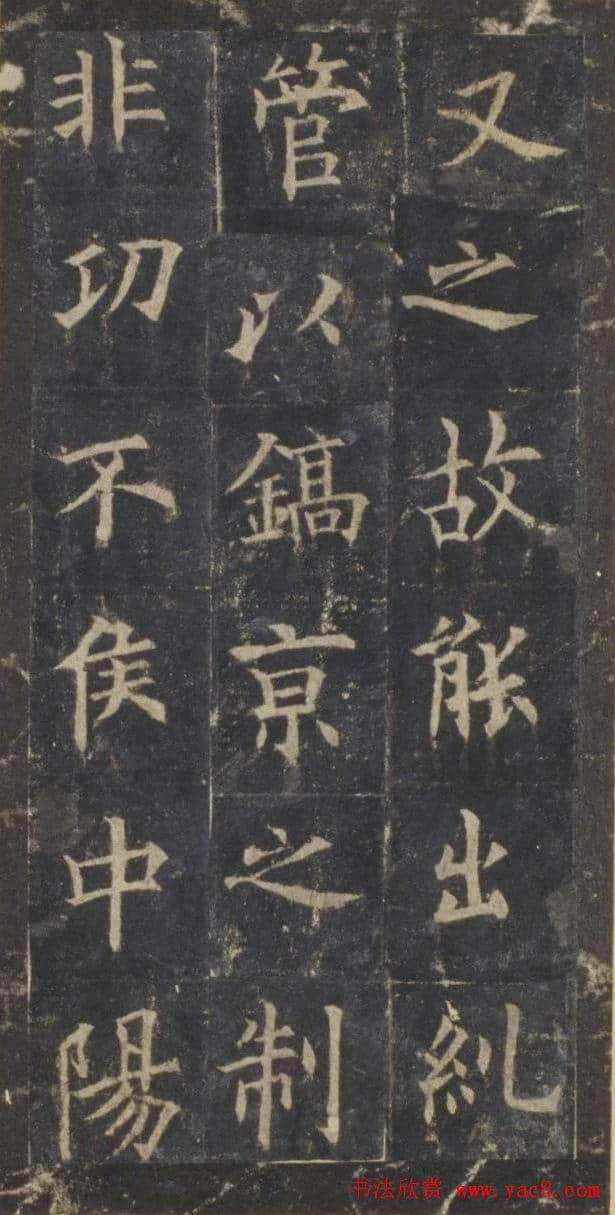 又之故能出糺
管以鎬亰之制
非功不侯中陽
书法欣赏 www.yac8.com